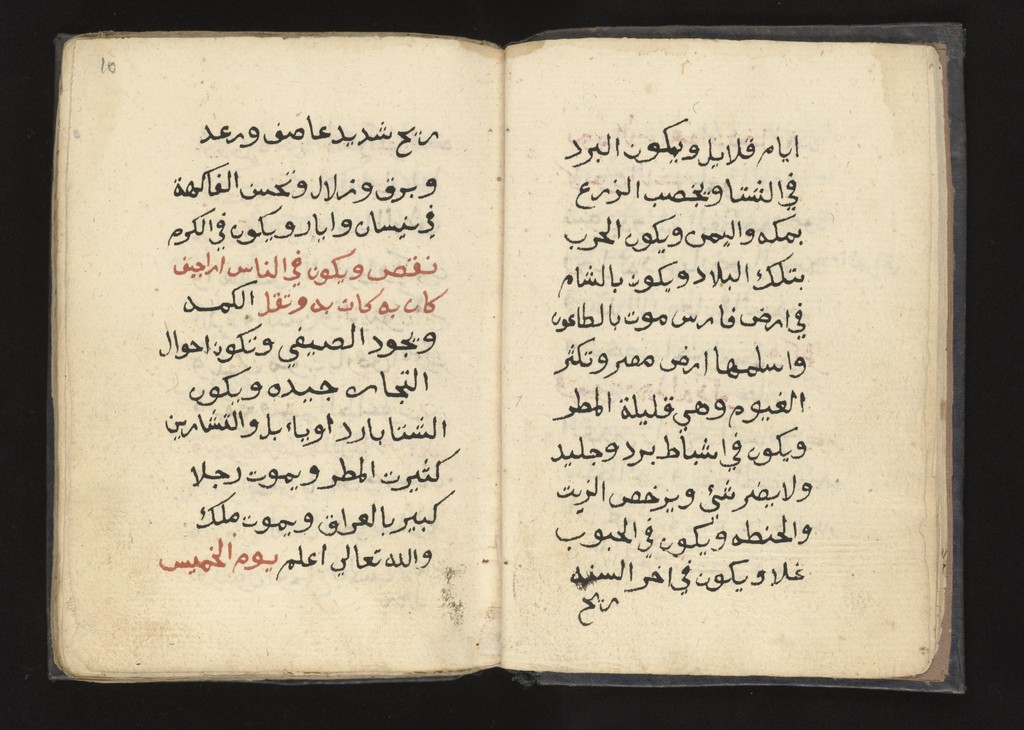 ايام قلايل ويكون البرد
في الشتا ويخصب الزرع
بمكه واليمن ويكون الحرب
بتلك البلاد ويكون بالشام
في ارض فارس موت بالطاعون
واسلمها ارض مصر وتكثر
الغيوم وهي قليلة المطر
ويكون في اشباط برد وجليد
ولا يضر شئي ويرخص الزيت
والحنطه ويكون في الحبوب
غلا ويكون في اخر السنه
ريح
10
ريح شديد عاصف ورعد
وبرق وزلازل وتحسن الفاكهة
في نيسان وايار ويكون في الكرم
نقص ويكون في الناس اراجيف
كان به كان به وتقل الكمه
ويجود الصيفي وتكون احوال
التجار جيده ويكون
الشتا بارد اوياءبل والتشارين
كثيرت المطر ويموت رجلا
كبير بالعراق ويموت ملك
والله تعالي اعلم يوم الخميس